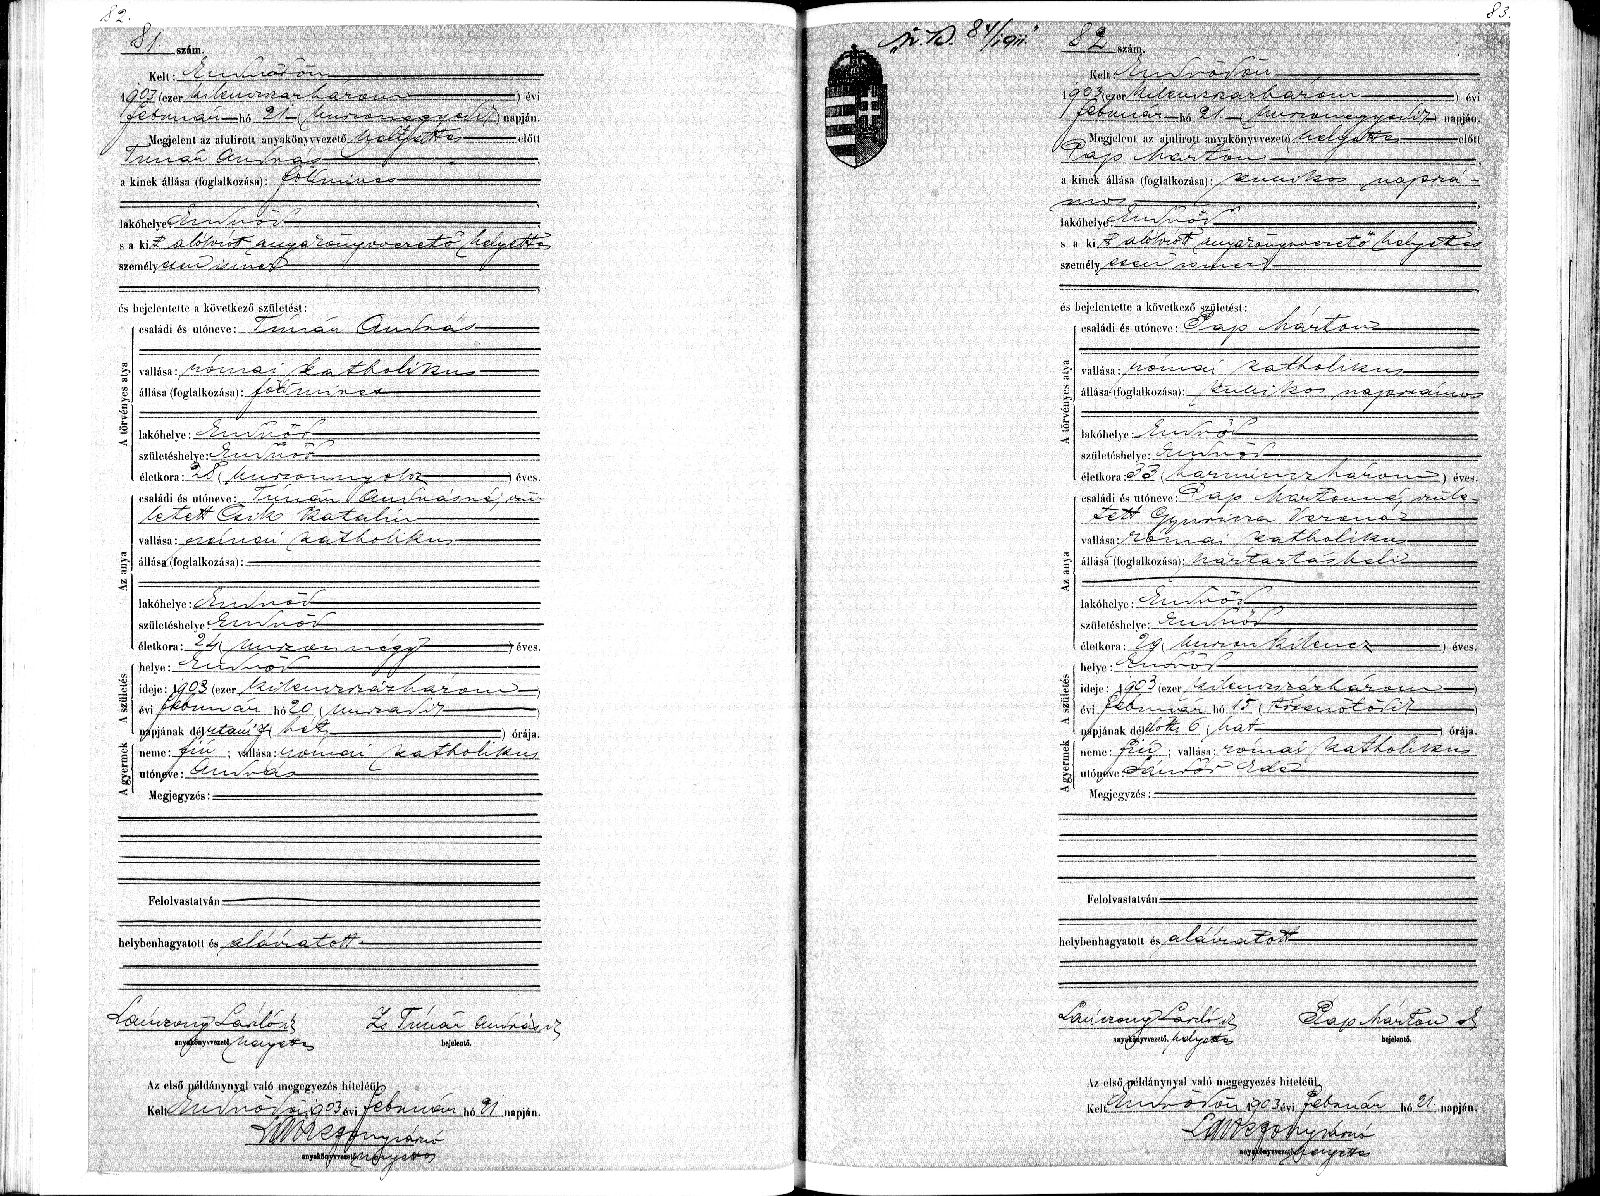 82.
81 szám.
Kelt: Endrődön
1903 (ezer kilenczszázhárom) évi
február hó 21 (huszonegyedik) napján.
Megjelent az alulirott anyakönyvvezető helyettes előtt
Timár András
a kinek állása (foglalkozása): földmives
lakóhelye: Endrőd
s a kit alólirott anyakönyvvezető helyettes
személyesen ismer
és bejelentette a következő születést:
A törvényes atya
családi és utóneve: Timár András
vallása: római katholikus
állása (foglalkozása): földmives
lakóhelye: Endrőd
születéshelye: Endrőd
életkora: 28 (huszonnyolcz) éves.
Az anya
családi és utóneve: Timár Andrásné, szü-
letett Csik Katalin
vallása: római katholikus
állása (foglalkozása):
lakóhelye: Endrőd
születéshelye: Endrőd
életkora: 24 (huszonnégy) éves.
A születés
helye: Endrőd
ideje: 1903 (ezer kilenczszázhárom)
évi február hó 20 (huszadik)
napjának délutáni 7 (hét) órája.
A gyermek
neme: fiú; vallása: római katholikus
utóneve: András
Megjegyzés:
Felolvastatván
helybenhagyatott és aláiratott
László Zs Timár András
anyakönyvvezető helyettes bejelentő.
Az első példánynyal való megegyezés hiteléül
Kelt Endrődön 1903 évi február hó 21 napján.
anyakönyvvezető helyettes
83.
84/1911.
82 szám.
Kelt Endrődön
1903 (ezer kilenczszázhárom) évi
február hó 21. (huszonegyedik) napján.
Megjelent az alulirott anyakönyvvezető helyettes előtt
Pap Márton
a kinek állása (foglalkozása): kubikos napszá-
mos
lakóhelye: Endrőd
s a kit alólirott anyakönyvvezető helyettes
személyesen ismer
és bejelentette a következő születést:
A törvényes atya
családi és utóneve: Pap Márton
vallása: római katholikus
állása (foglalkozása): kubikos napszámos
lakóhelye: Endrőd
születéshelye: Endrőd
életkora: 33 (harminczhárom) éves.
Az anya
családi és utóneve: Pap Mártonné, szüle-
tett Gyuricza Verona
vallása: római katholikus
állása (foglalkozása): háztartásbeli
lakóhelye: Endrőd
születéshelye: Endrőd
életkora: 29 (huszonkilencz) éves.
A születés
helye: Endrőd
ideje: 1903 (ezer kilenczszázhárom)
évi február hó 15 (tizenötödik)
napjának délelőtti 6 (hat) órája.
A gyermek
neme: fiú; vallása: római katholikus
utóneve: Sándor
Megjegyzés:
Felolvastatván
helybenhagyatott és aláiratott
László Pap Márton
anyakönyvvezető helyettes bejelentő.
Az első példánynyal való megegyezés hiteléül
Kelt Endrődön 1903 évi február hó 21 napján.
anyakönyvvezető helyettes